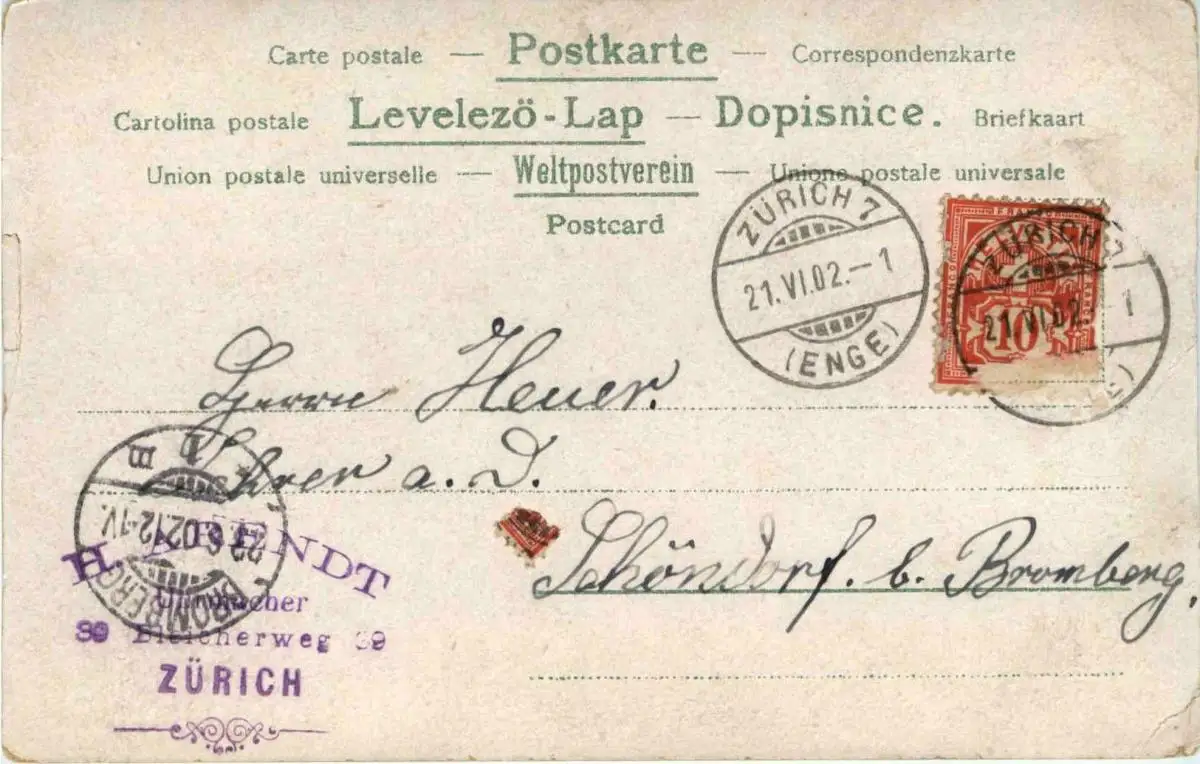 Carte postale — Postkarte — Correspondenzkarte
Cartolina postale Levelező-Lap — Dopisnice. Briefkaart
Union postale universelle — Weltpostverein — Unione postale universale
Postcard
ZÜRICH 7
21.VI.02.–1
(ENGE)
ZÜRICH
21.VI.02. 1
10
Herrn Heuer.
Lehrer a. D.
Schöndorf. b. Bromberg,
BROMBERG
1
22.6.02.12-1V.
H. ARENDT
Uhrmacher
39 Bleicherweg 39
ZÜRICH